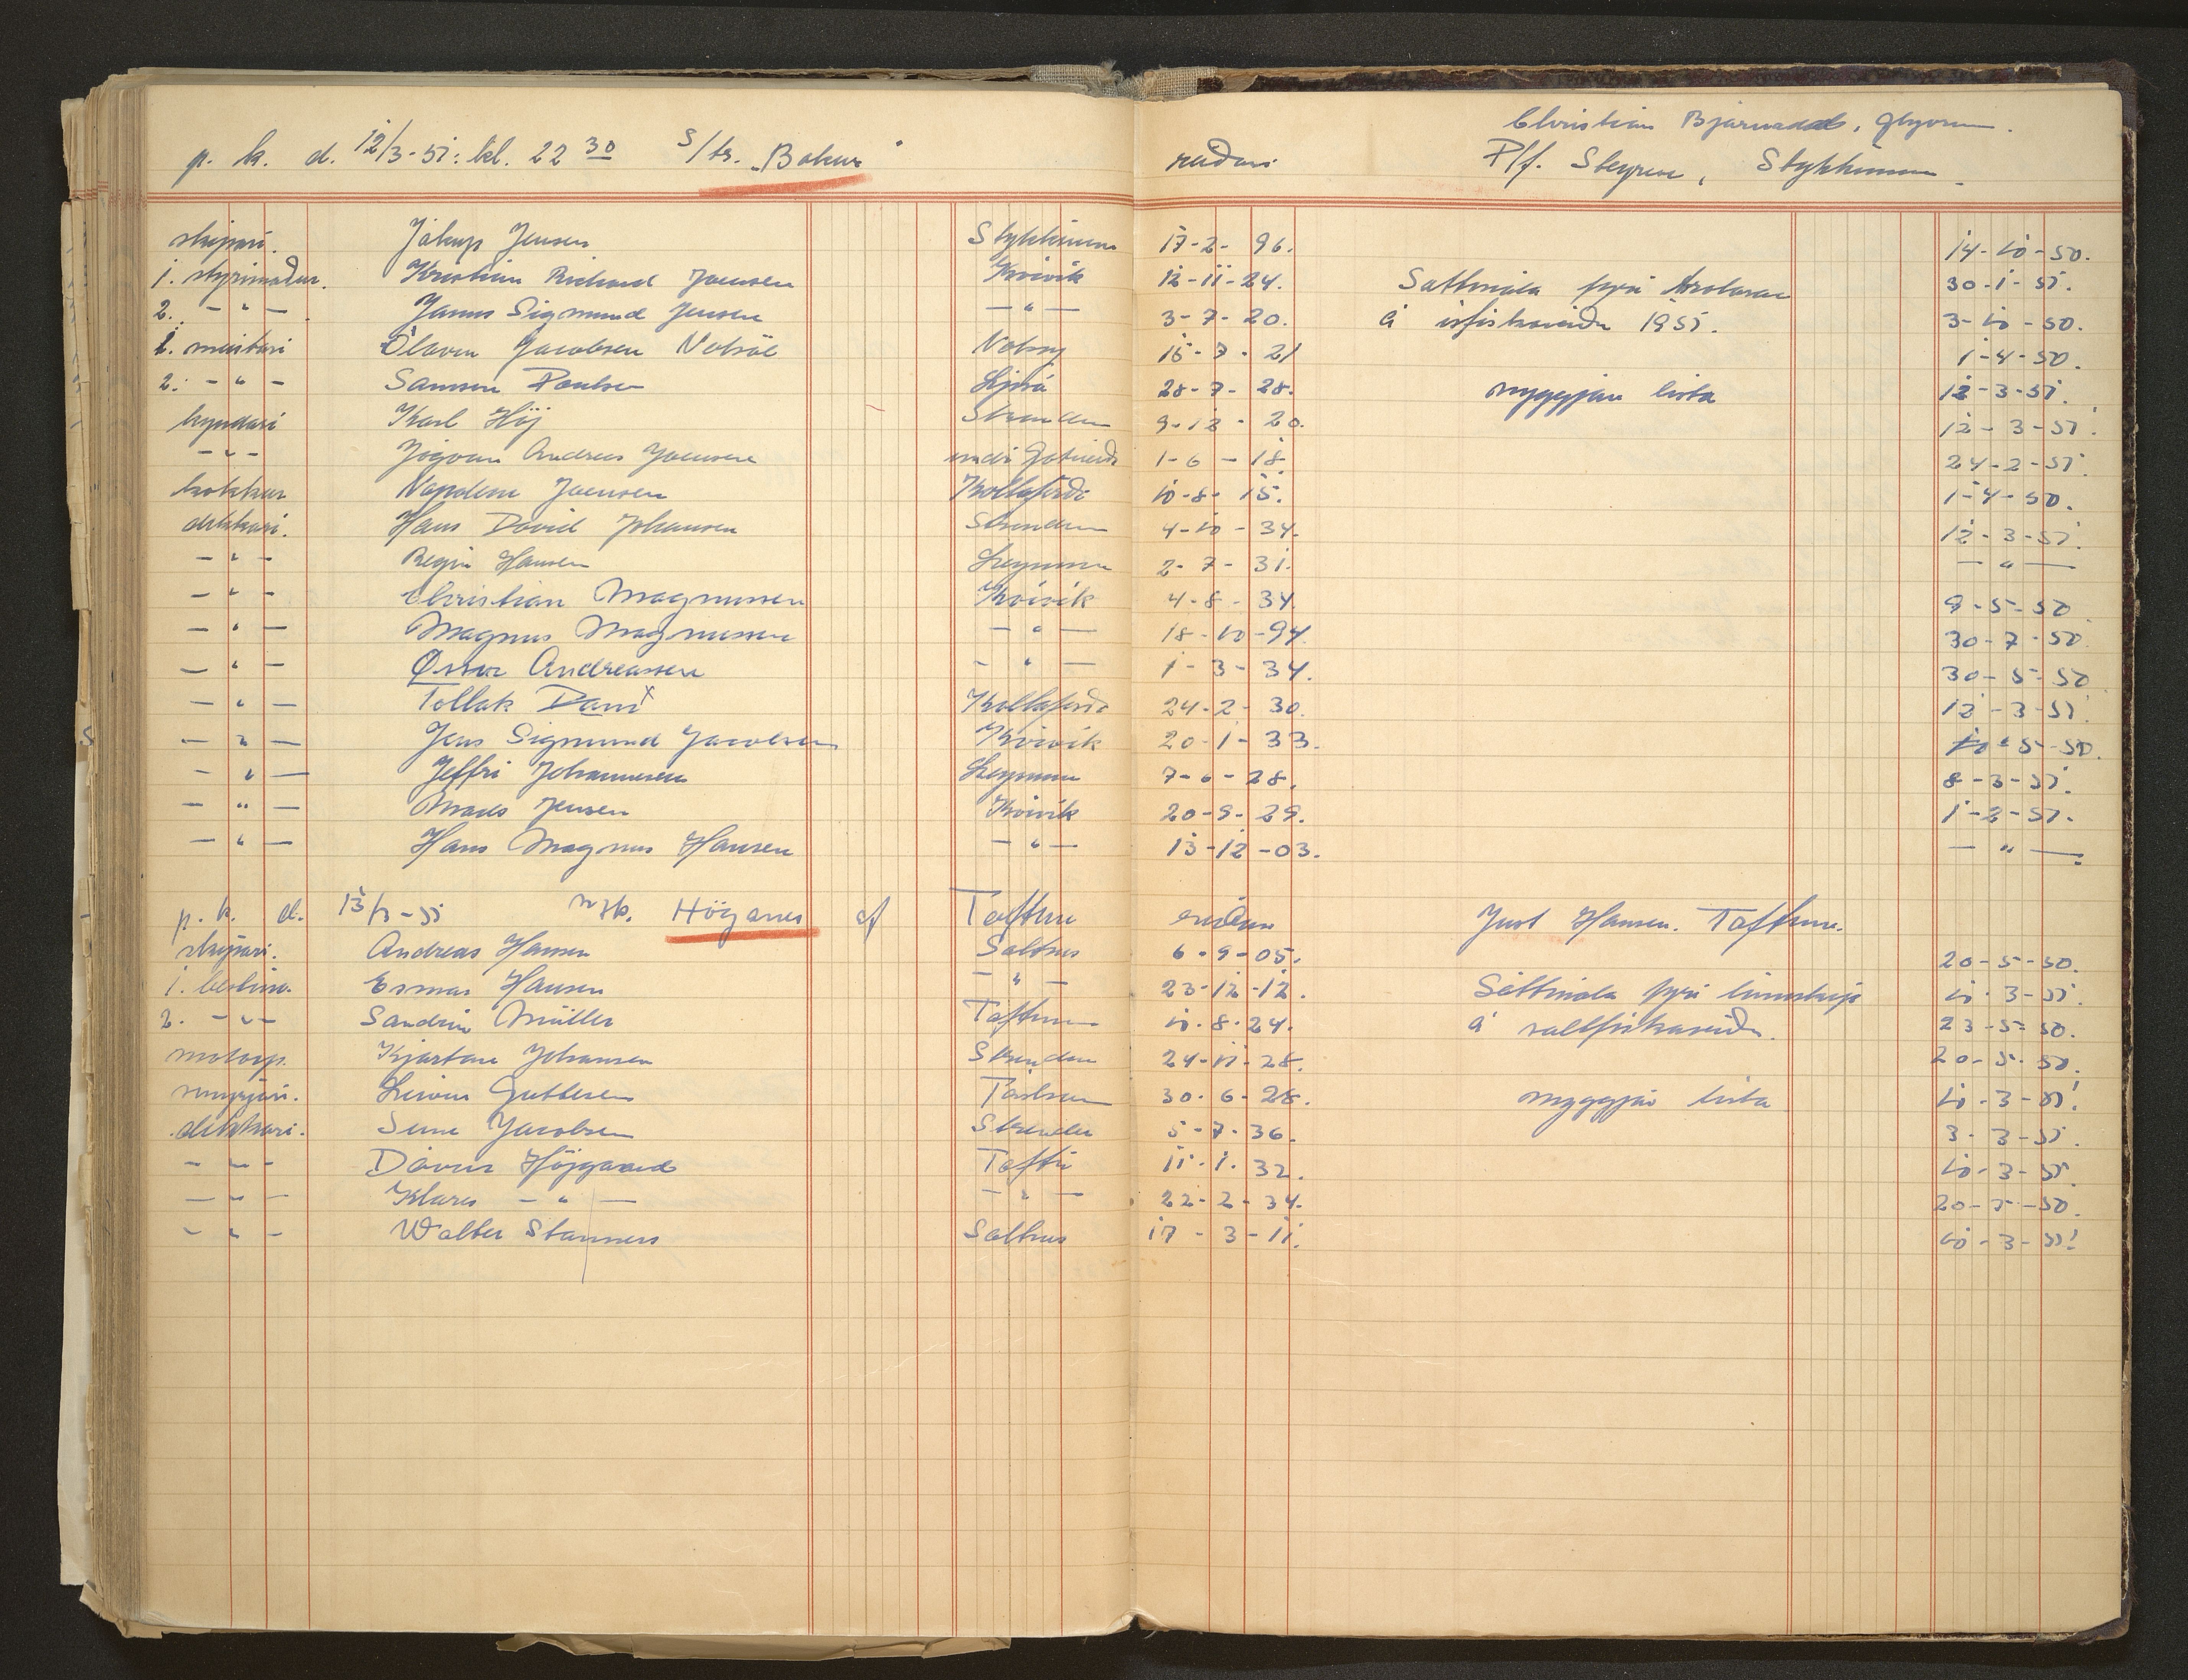 Christian Bjarnadal, Glyvrum.
p. k. d. 12/3-51: kl. 22 30 S/tr. "Bakur" reiðari P/f. Steyrur, Stykkinum.
skipari. Jákup Jensen Stykkinum 17-2-96. 14-10-50.
1. stýrimaður. Kristian Richard Joensen Kvívík 12-11-24. Sáttmála fyri trolarar 30-1-51.
2. -"- Janus Sigmund Jensen -"- 3-7-20. á ísfiskaveiðu 1951. 3-10-50.
1. meistari Ólavur Jacobsen Nolsøe Nolsoy 15-7-21 1-4-50.
2. -"- Samson Poulsen Ljosá 28-7-28. myggjan lista 12-3-51.
kyndari Karl Høj Strendur 9-12-20. 12-3-51.
-"- Jógvan Andreas Joensen undir Gøtueiði 1-6-18 24-2-51.
kokkur Napoleon Joensen Kollafirði 10-8-15. 1-4-50.
dekkari. Hans David Johansen Strendur 4-10-34. 12-3-51.
-"- Regin Hansen Leynum 2-7-31. -"-
-"- Christian Magnussen Kvívík 4-8-34. 9-5-50
-"- Magnus Magnussen -"- 18-10-94. 30-7-50.
-"- Øssur Andreassen -"- 1-3-34. 30-5-50
-"- Tollak Dam x Kollafirði 24-2-30. 12-3-51.
-"- Jens Sigmund Jacobsen Kvívík 20-1-33. 10-5-50.
-"- Jeffri Johannesen Leynum 7-6-28. 8-3-51.
-"- Mads Jensen Kvívík 20-9-29. 1-2-51.
-"- Hans Magnus Hansen -"- 13-12-03. -"-
p. k. d. 13/3-51 m/sk. Höganes af Toftum reiðari Just Hansen. Toftum.
skipari. Andreas Hansen Saltnes 6-9-05. 20-5-50.
1. bestim. Esmar Hansen -"- 23-12-12. Sáttmála fyri línuskip 10-3-51.
2. -"- Sandrin Müller Toftum 10-8-24. á saltfiskaveiðu. 23-5-50.
motorp. Kjartan Johansen Strendur 24-11-28. 20-5-50.
smyrjari. Leivur Guttesen 30-6-28. myggjan lista 10-3-51.
dekkari. Sune Jacobsen Strendur 5-7-36. 3-3-51.
-"- Dávur Højgaard Toftir 11-1-32. 10-3-51.
-"- Klares -"- -"- 22-2-34. 20-5-50.
-"- Walter Stanners Saltnes 17-3-11. 10-3-51.